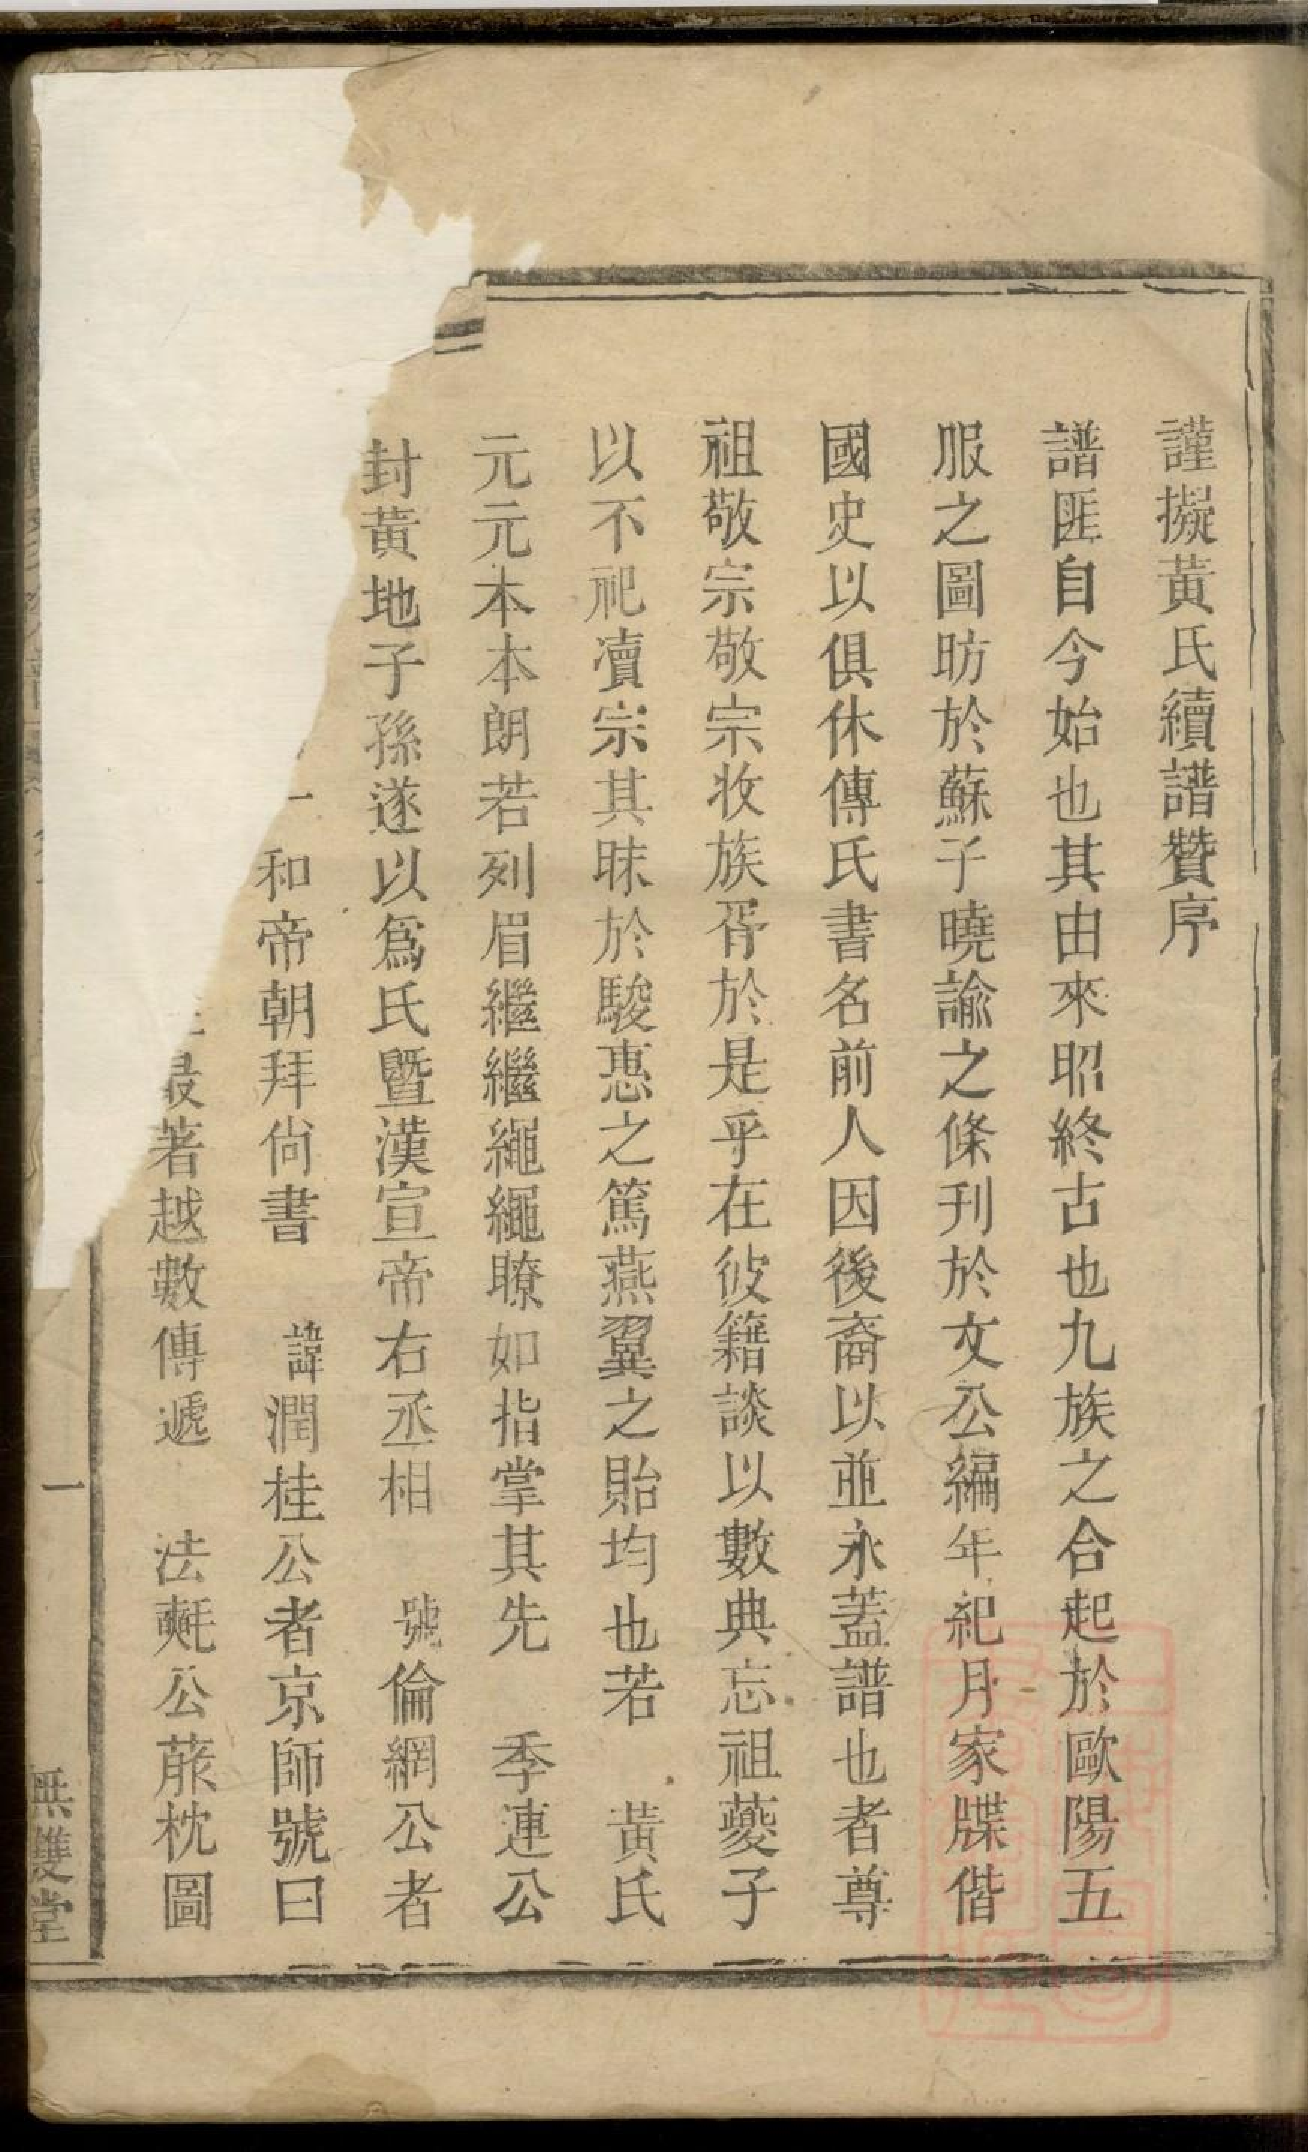 謹擬黃氏續譜贊序
譜匪自今始也其由來昭終古也九族之合起於歐陽五
服之圖昉於蘇子曉諭之條刊於文公編年紀月家牒偕
國史以俱休傳氏書名前人因後裔以並永蓋譜也者尊
祖敬宗敬宗收族胥於是乎在彼籍談以數典忘祖夔子
以不祀瀆宗其昧於駿惠之篤燕翼之貽均也若 黃氏
元元本本朗若列眉繼繼繩繩瞭如指掌其先 季連公
封黃地子孫遂以爲氏暨漢宣帝右丞相 號倫網公者
和帝朝拜尚書 諱潤桂公者京師號曰
最著越數傳遞 法㲠公菔枕圖
一
無雙堂